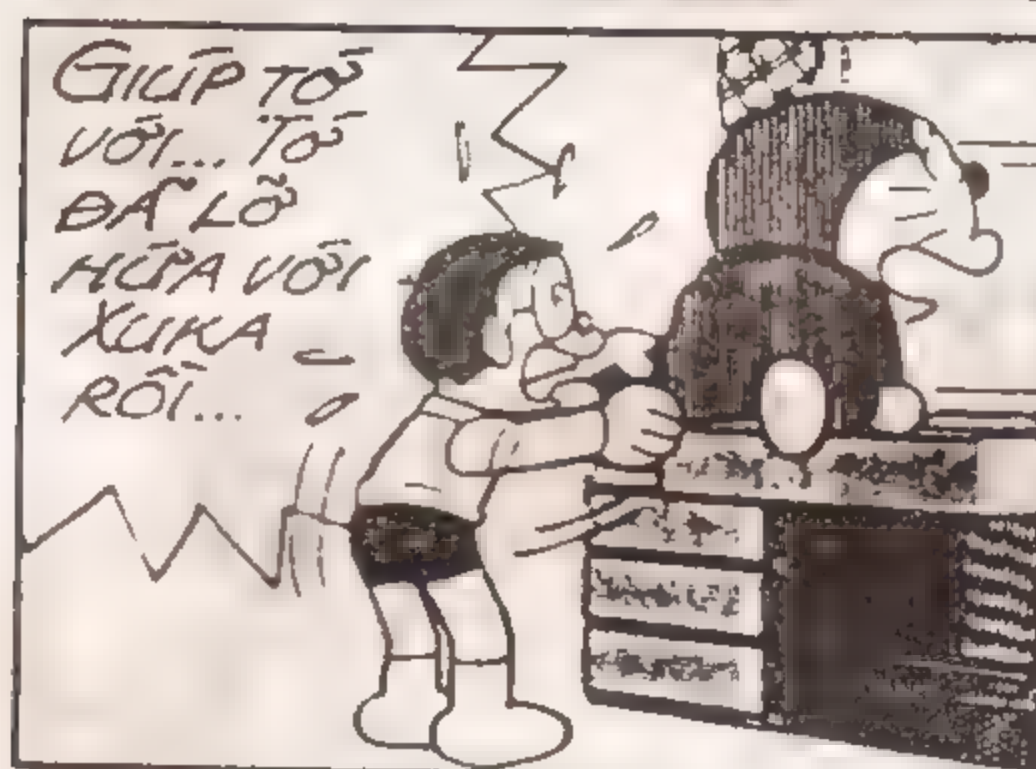 GIÚP TỚ
VỚI... TỚ
ĐÃ LỠ
HỨA VỚI
XUKA
RỒI...